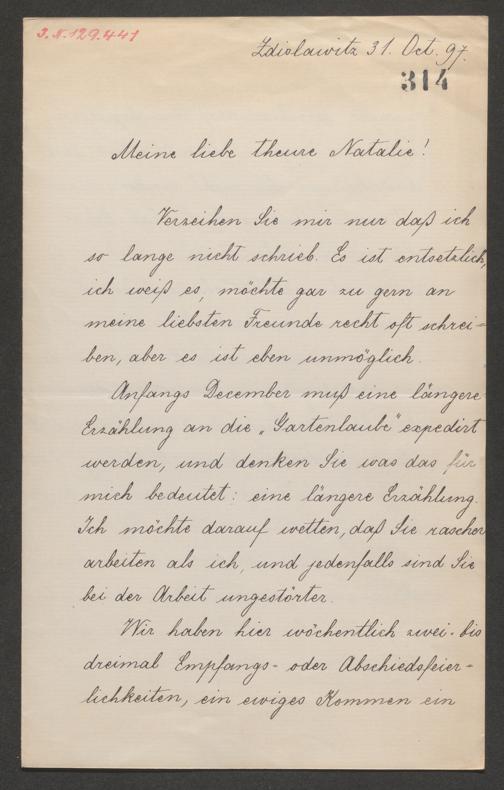 J.N.129.441
Zdislawitz 31. Oct. 97.
314
Meine liebe theure Natalie!
Verzeihen Sie mir nur daß ich
so lange nicht schrieb. Es ist entsetzlich,
ich weiß es, möchte gar zu gern an
meine liebsten Freunde recht oft schrei-
ben, aber es ist eben unmöglich.
Anfangs December muß eine längere
Erzählung an die „Gartenlaube“ expedirt
werden, und denken Sie was das für
mich bedeutet: eine längere Erzählung.
Ich möchte darauf wetten, daß Sie rascher
arbeiten als ich, und jedenfalls sind Sie
bei der Arbeit ungestörter.
Wir haben hier wöchentlich zwei- bis
dreimal Empfangs- oder Abschiedsfeier-
lichkeiten, ein ewiges Kommen ein